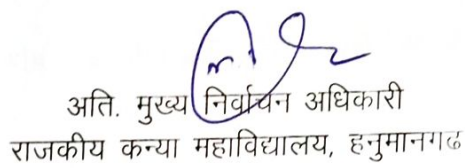 अति. मुख्य निर्वाचन अधिकारी
राजकीय कन्या महाविद्यालय, हनुमानगढ